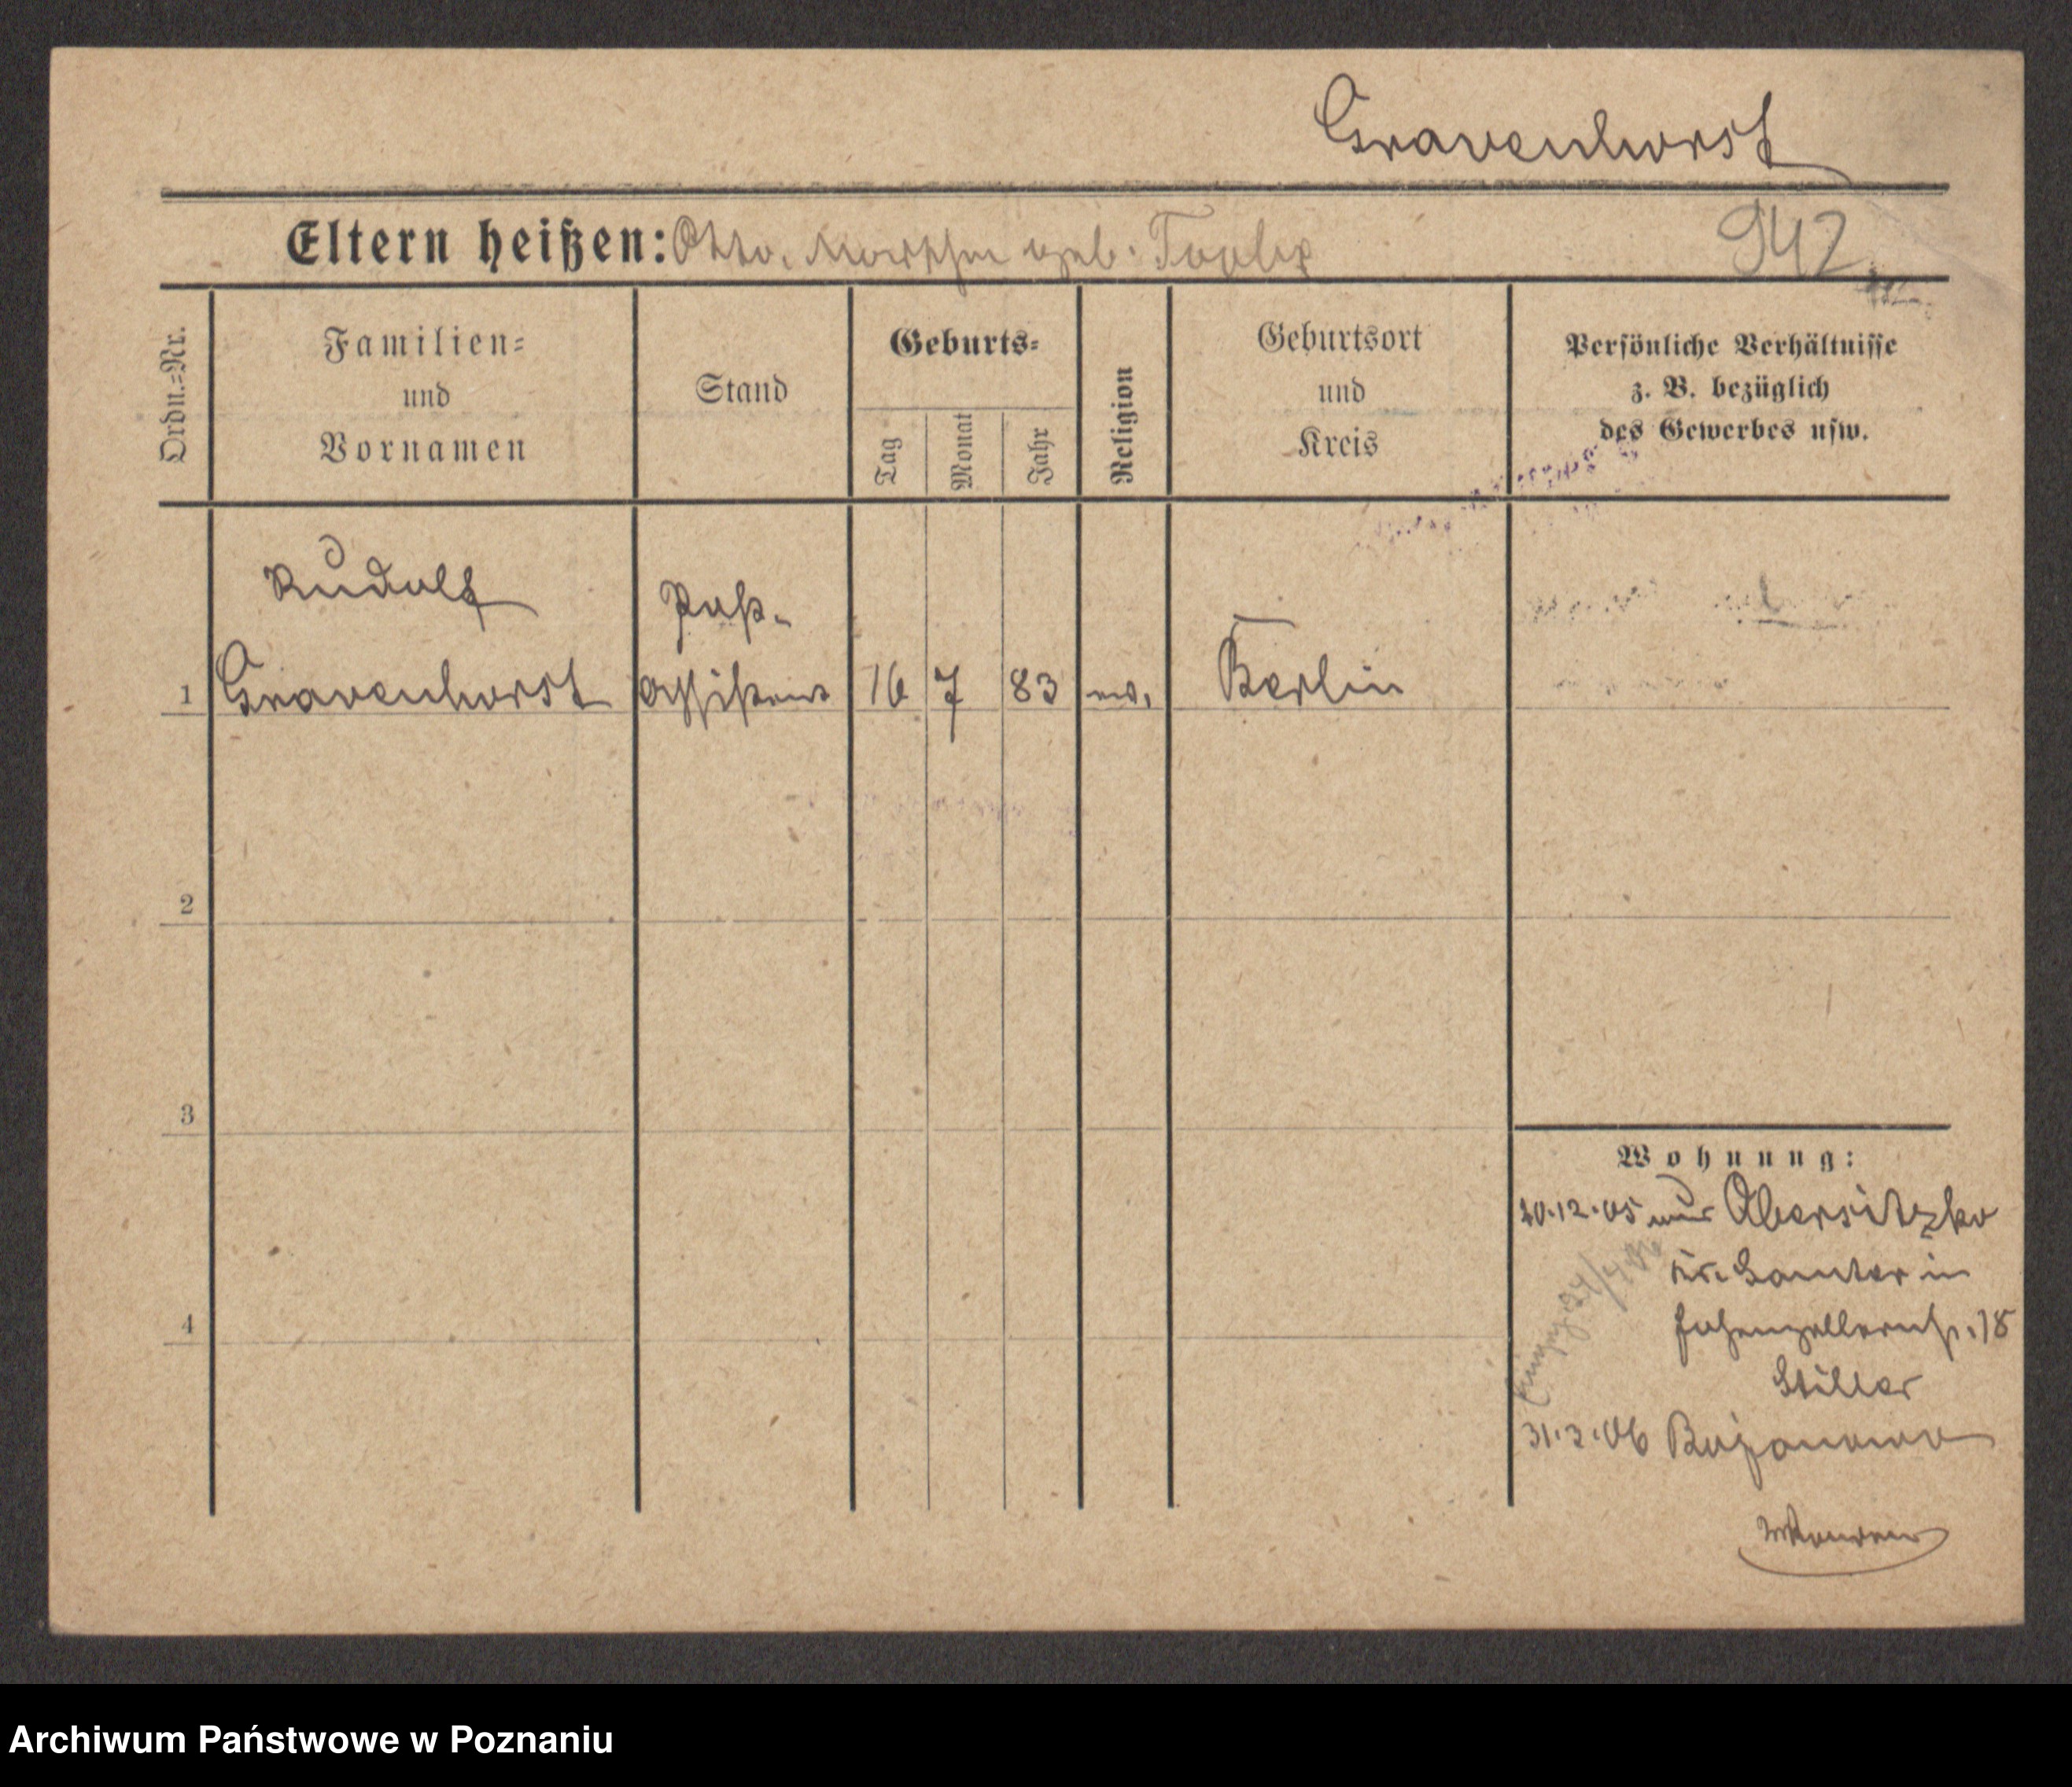 Gravenhorst
Eltern heißen: Otto, Marthe geb.
942
Ordn.=Nr.
Familien=
und
Vornamen
Stand
Geburts=
Tag
Monat
Jahr
Religion
Geburtsort
und
Kreis
Persönliche Verhältnisse
z. B. bezüglich
des Gewerbes usw.
Rudolf
Post-
1 Gravenhorst assistent 16 7 83 ev. Berlin
2
3
Wohnung:
12.05 aus Obersitzko
Kr. Samter in
4
Hohenzollernstr. 18
Stiller
31.3.06 Bojanowo